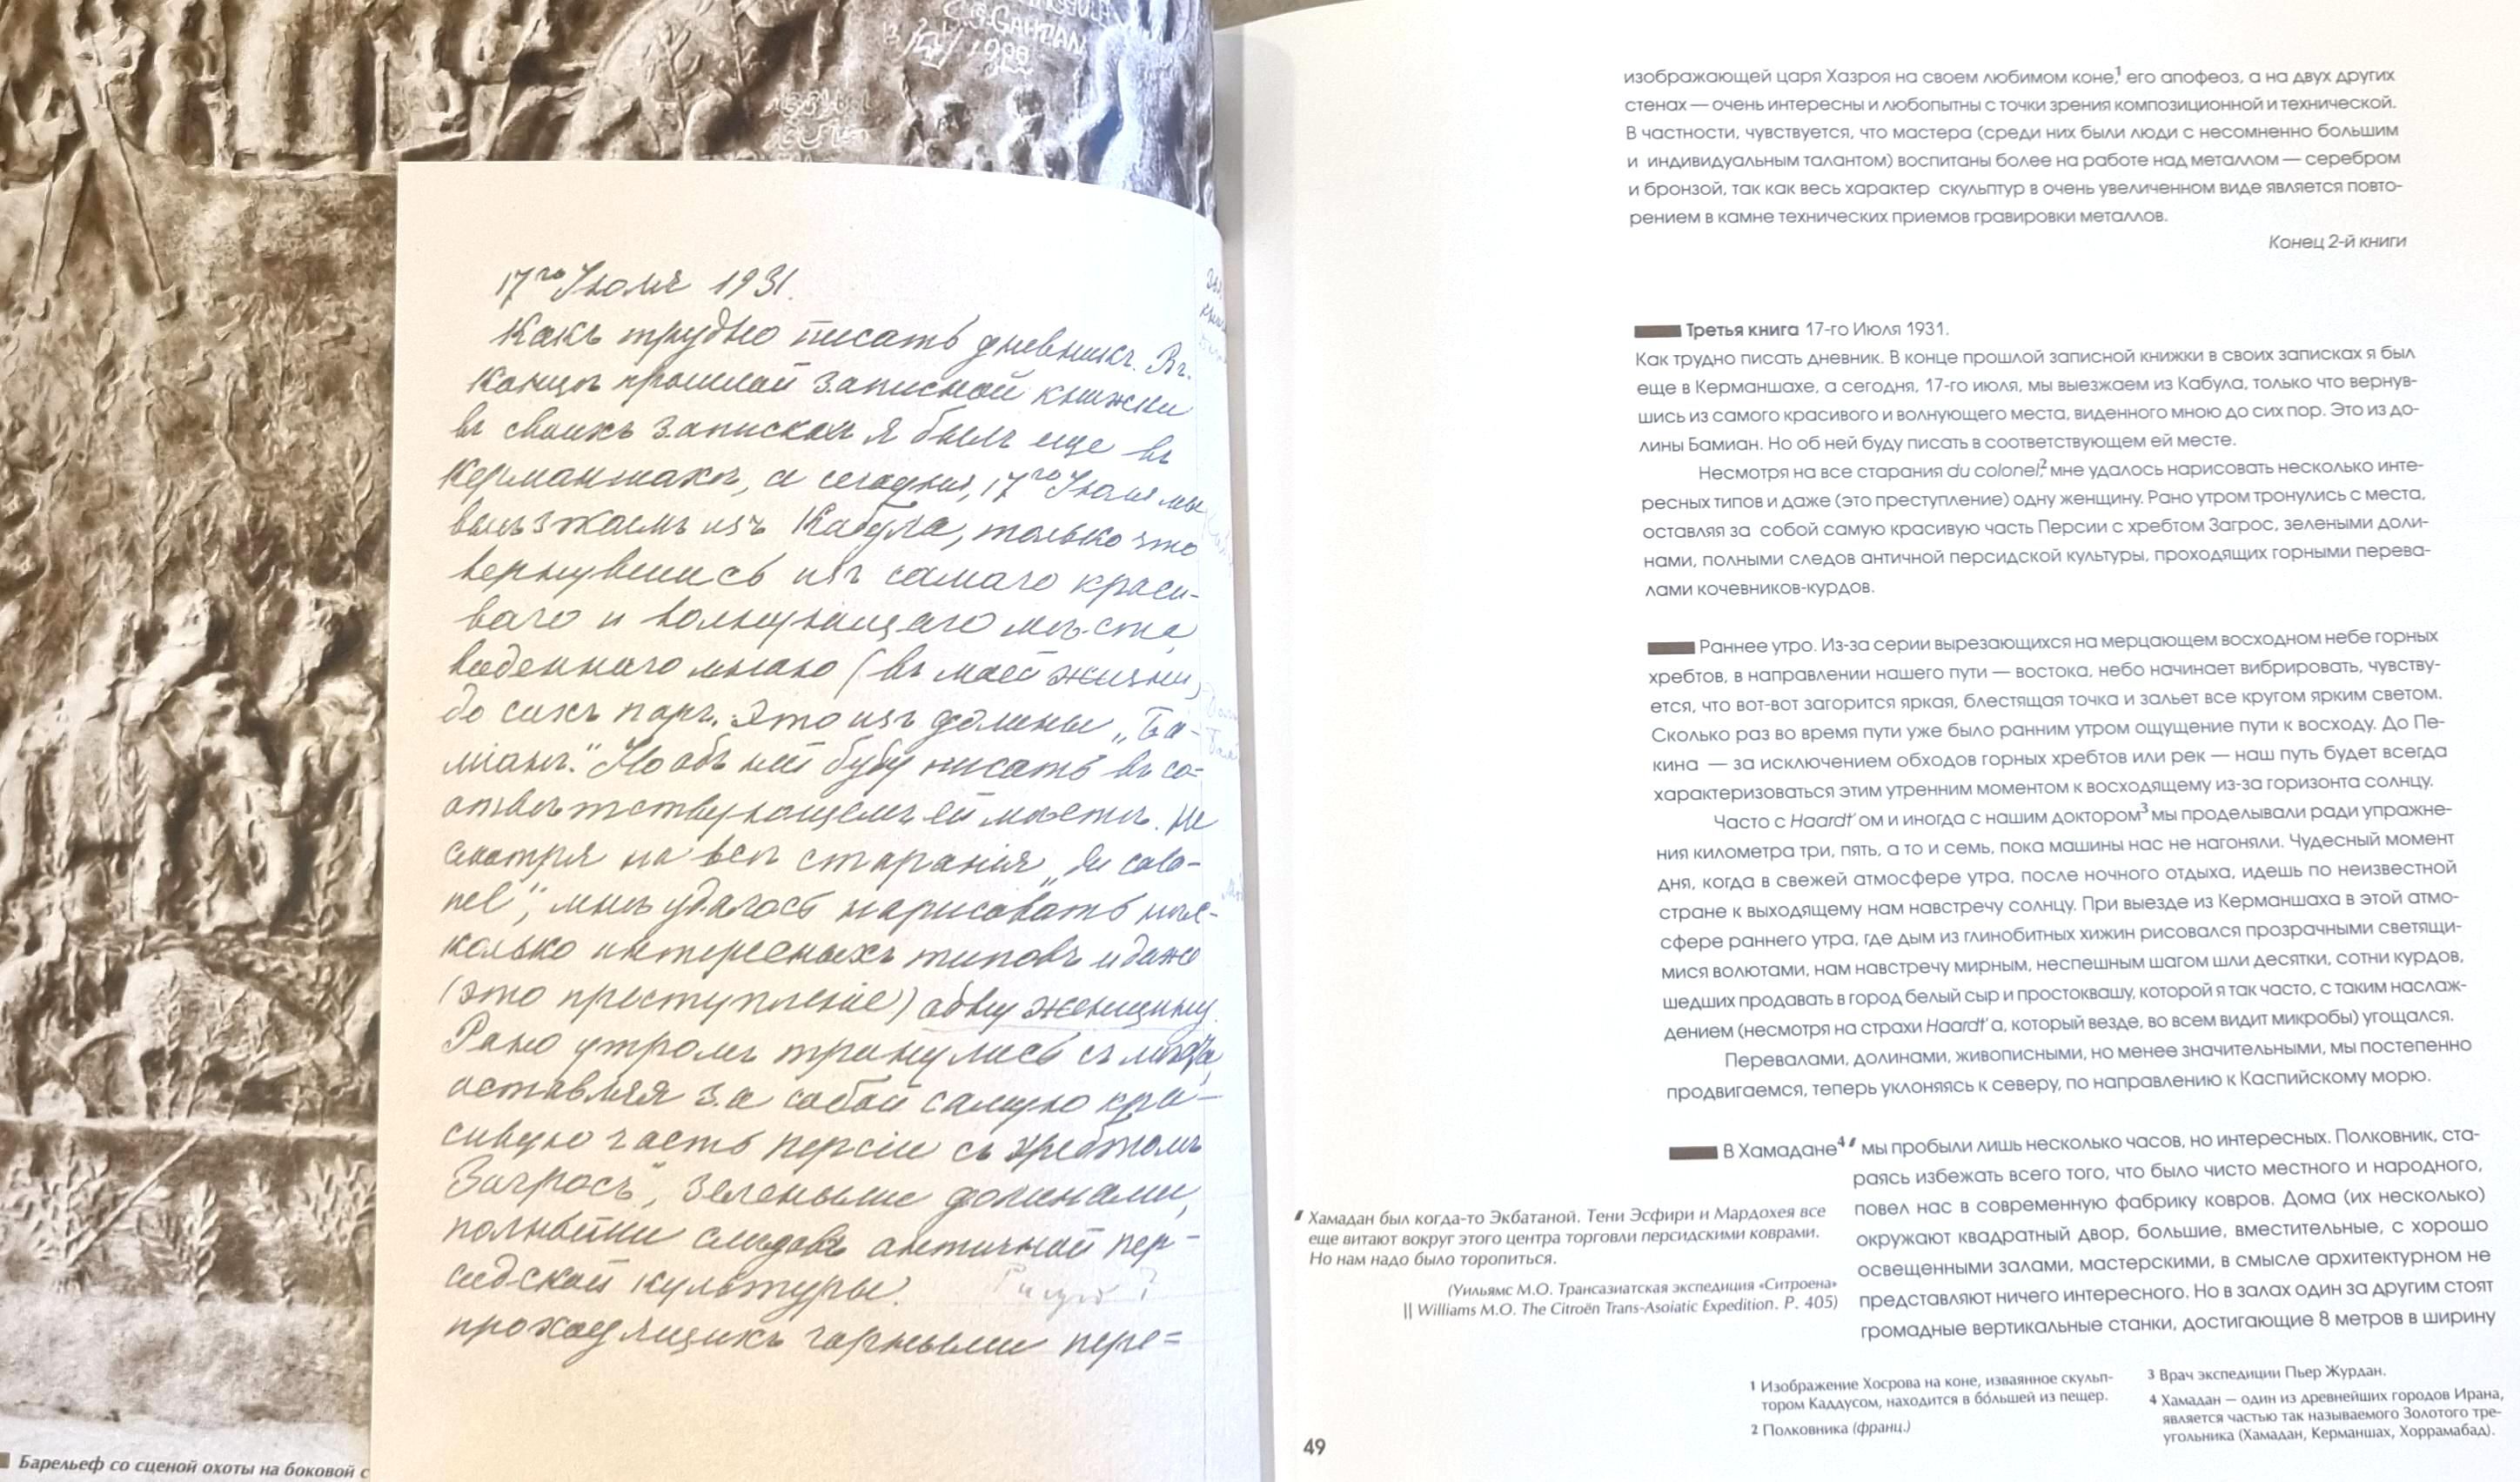 C.G. GAHTAN
1900
17го Іюля 1931.
Какъ трудно писать дневникъ. Въ
концѣ прошлой записной книжки
въ своихъ запискахъ я былъ еще въ
Керманшахѣ, а сегодня, 17го Іюля мы
выѣзжаемъ изъ Кабула, только что
вернувшись изъ самаго краси-
ваго и волнующаго мѣста,
виденнаго мною (въ моей жизни)
до сихъ поръ. Это изъ долины „Ба-
міанъ“. Но объ ней буду писать въ со-
отвѣтствующемъ ей мѣстѣ. Не
смотря на всѣ старанія „du colo-
nel“, мнѣ удалось нарисовать нѣс-
колько интересныхъ типовъ и даже
(это преступленіе) одну женщину.
Рано утромъ тронулись съ мѣста,
оставляя за собой самую кра-
сивую часть Персіи съ хребтомъ
Загросъ“, зелеными долинами,
полными слѣдовъ античной пер-
сидской культуры.
проходящихъ горными пере=
Барельеф со сценой охоты на боковой с
изображающей царя Хазроя на своем любимом коне,1 его апофеоз, а на двух других
стенах — очень интересны и любопытны с точки зрения композиционной и технической.
В частности, чувствуется, что мастера (среди них были люди с несомненно большим
и индивидуальным талантом) воспитаны более на работе над металлом — серебром
и бронзой, так как весь характер скульптур в очень увеличенном виде является повто-
рением в камне технических приемов гравировки металлов.
Конец 2-й книги
Третья книга 17-го Июля 1931.
Как трудно писать дневник. В конце прошлой записной книжки в своих записках я был
еще в Керманшахе, а сегодня, 17-го июля, мы выезжаем из Кабула, только что вернув-
шись из самого красивого и волнующего места, виденного мною до сих пор. Это из до-
лины Бамиан. Но об ней буду писать в соответствующем ей месте.
Несмотря на все старания du colonel,2 мне удалось нарисовать несколько инте-
ресных типов и даже (это преступление) одну женщину. Рано утром тронулись с места,
оставляя за собой самую красивую часть Персии с хребтом Загрос, зелеными доли-
нами, полными следов античной персидской культуры, проходящих горными перева-
лами кочевников-курдов.
Раннее утро. Из-за серии вырезающихся на мерцающем восходном небе горных
хребтов, в направлении нашего пути — востока, небо начинает вибрировать, чувству-
ется, что вот-вот загорится яркая, блестящая точка и зальет все кругом ярким светом.
Сколько раз во время пути уже было ранним утром ощущение пути к восходу. До Пе-
кина — за исключением обходов горных хребтов или рек — наш путь будет всегда
характеризоваться этим утренним моментом к восходящему из-за горизонта солнцу.
Часто с Haardt'ом и иногда с нашим доктором3 мы проделывали ради упражне-
ния километра три, пять, а то и семь, пока машины нас не нагоняли. Чудесный момент
дня, когда в свежей атмосфере утра, после ночного отдыха, идешь по неизвестной
стране к выходящему нам навстречу солнцу. При выезде из Керманшаха в этой атмо-
сфере раннего утра, где дым из глинобитных хижин рисовался прозрачными светящи-
мися волютами, нам навстречу мирным, неспешным шагом шли десятки, сотни курдов,
шедших продавать в город белый сыр и простоквашу, которой я так часто, с таким наслаж-
дением (несмотря на страхи Haardt'а, который везде, во всем видит микробы) угощался.
Перевалами, долинами, живописными, но менее значительными, мы постепенно
продвигаемся, теперь уклоняясь к северу, по направлению к Каспийскому морю.
В Хамадане4 мы пробыли лишь несколько часов, но интересных. Полковник, ста-
раясь избежать всего того, что было чисто местного и народного,
повел нас в современную фабрику ковров. Дома (их несколько)
окружают квадратный двор, большие, вместительные, с хорошо
освещенными залами, мастерскими, в смысле архитектурном не
представляют ничего интересного. Но в залах один за другим стоят
громадные вертикальные станки, достигающие 8 метров в ширину
Хамадан был когда-то Экбатаной. Тени Эсфири и Мардохея все
еще витают вокруг этого центра торговли персидскими коврами.
Но нам надо было торопиться.
(Уильямс М.О. Трансазиатская экспедиция «Ситроена»
|| Williams M.O. The Citroën Trans-Asoiatic Expedition. P. 405)
1 Изображение Хосрова на коне, изваянное скульп-
тором Каддусом, находится в бо́льшей из пещер.
2 Полковника (франц.)
3 Врач экспедиции Пьер Журдан.
4 Хамадан — один из древнейших городов Ирана,
является частью так называемого Золотого тре-
угольника (Хамадан, Керманшах, Хоррамабад).
49